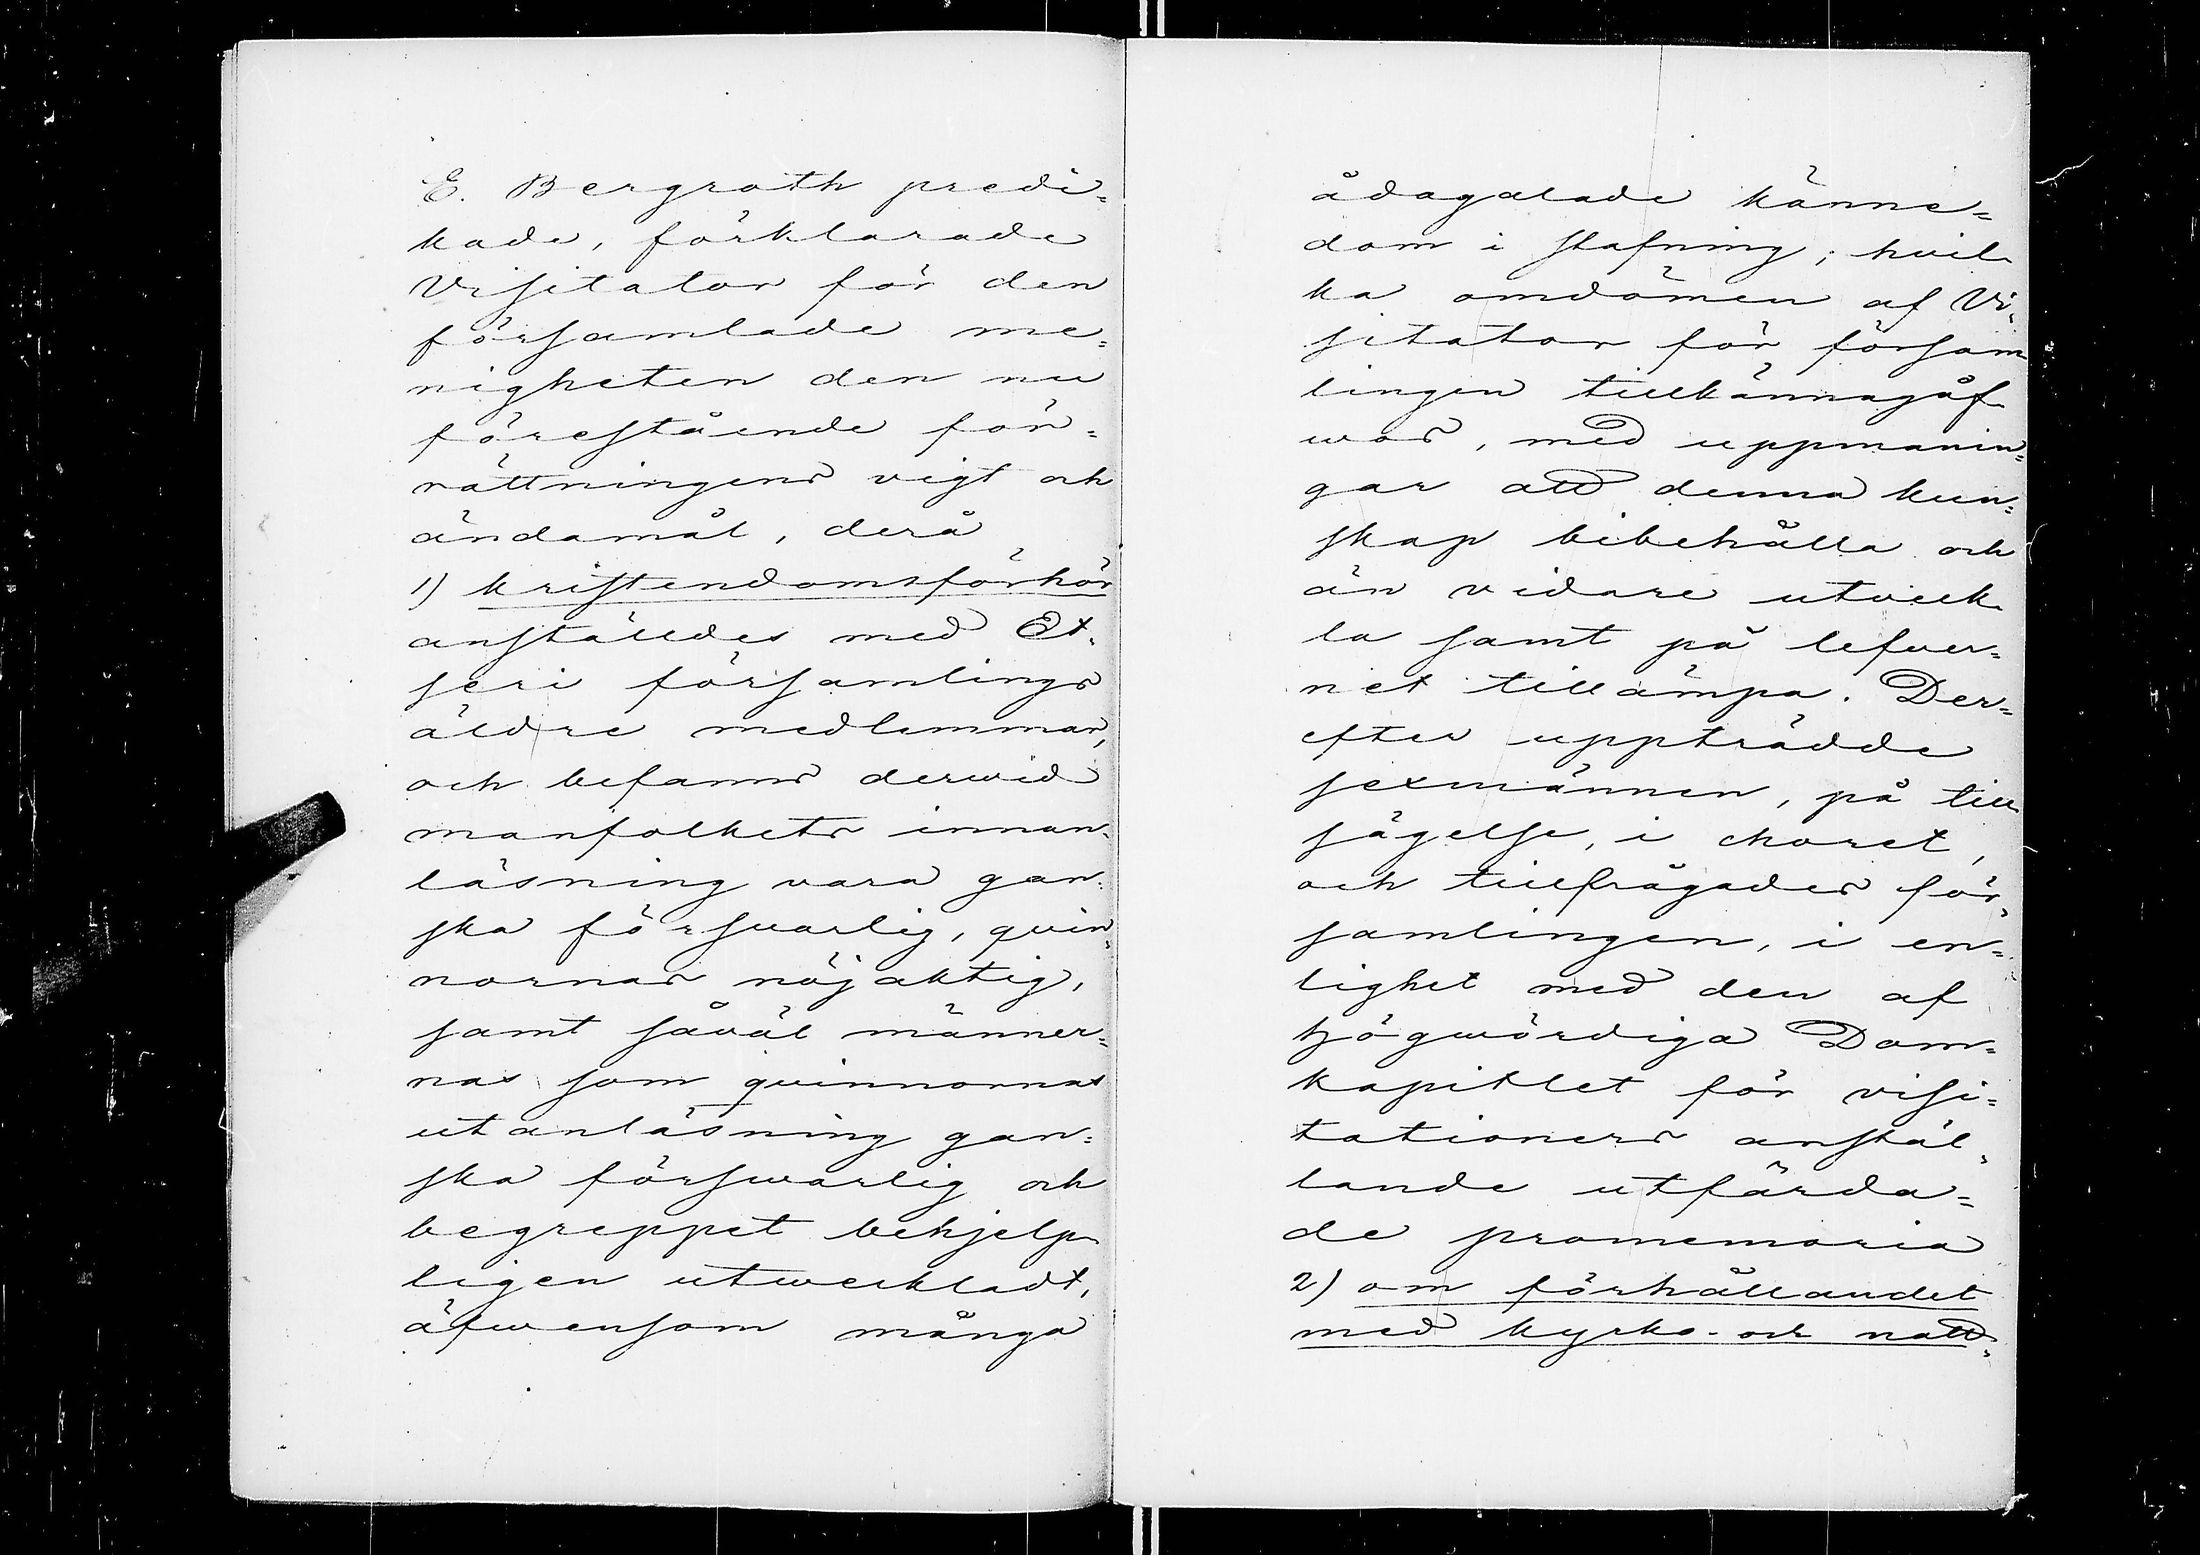 E. Bergroth predi=
kade, förklarade
Visitator för den
församlade me=
nigheten den nu
förestående för=
rättningens vigt och
ändamål, derå
1) kristendomsförhör
anställdes med Et=
seri församlings
äldre medlemmar,
och befanns derwid
manfolkets innan=
läsning vara gan=
ska försvarlig, qvin=
nornas nöjaktig,
samt såväl männer=
nas som qvinnornas
utanläsning gan=
ska förswarlig och
begreppet behjelp=
ligen utweckladt,
äfwensom många
ådagalade känne=
dom i stafning; hvil=
ka omdömen af Vi=
sitator för försam
lingen tillkännagåf=
wos, med uppmanin=
gar att denna kun=
skap bibehålla och
än vidare utveck=
la samt på lefver=
net tillämpa. Der=
efter uppträdde
sexmännen, på till=
sägelse, i choret,
och tillfrågades för=
samlingen, i en=
lighet med den af
Högwördiga Dom=
kapitlet för visi=
tationers anstäl=
lande utfärda=
de promemoria
2) om förhållandet
med kyrko- och natt=